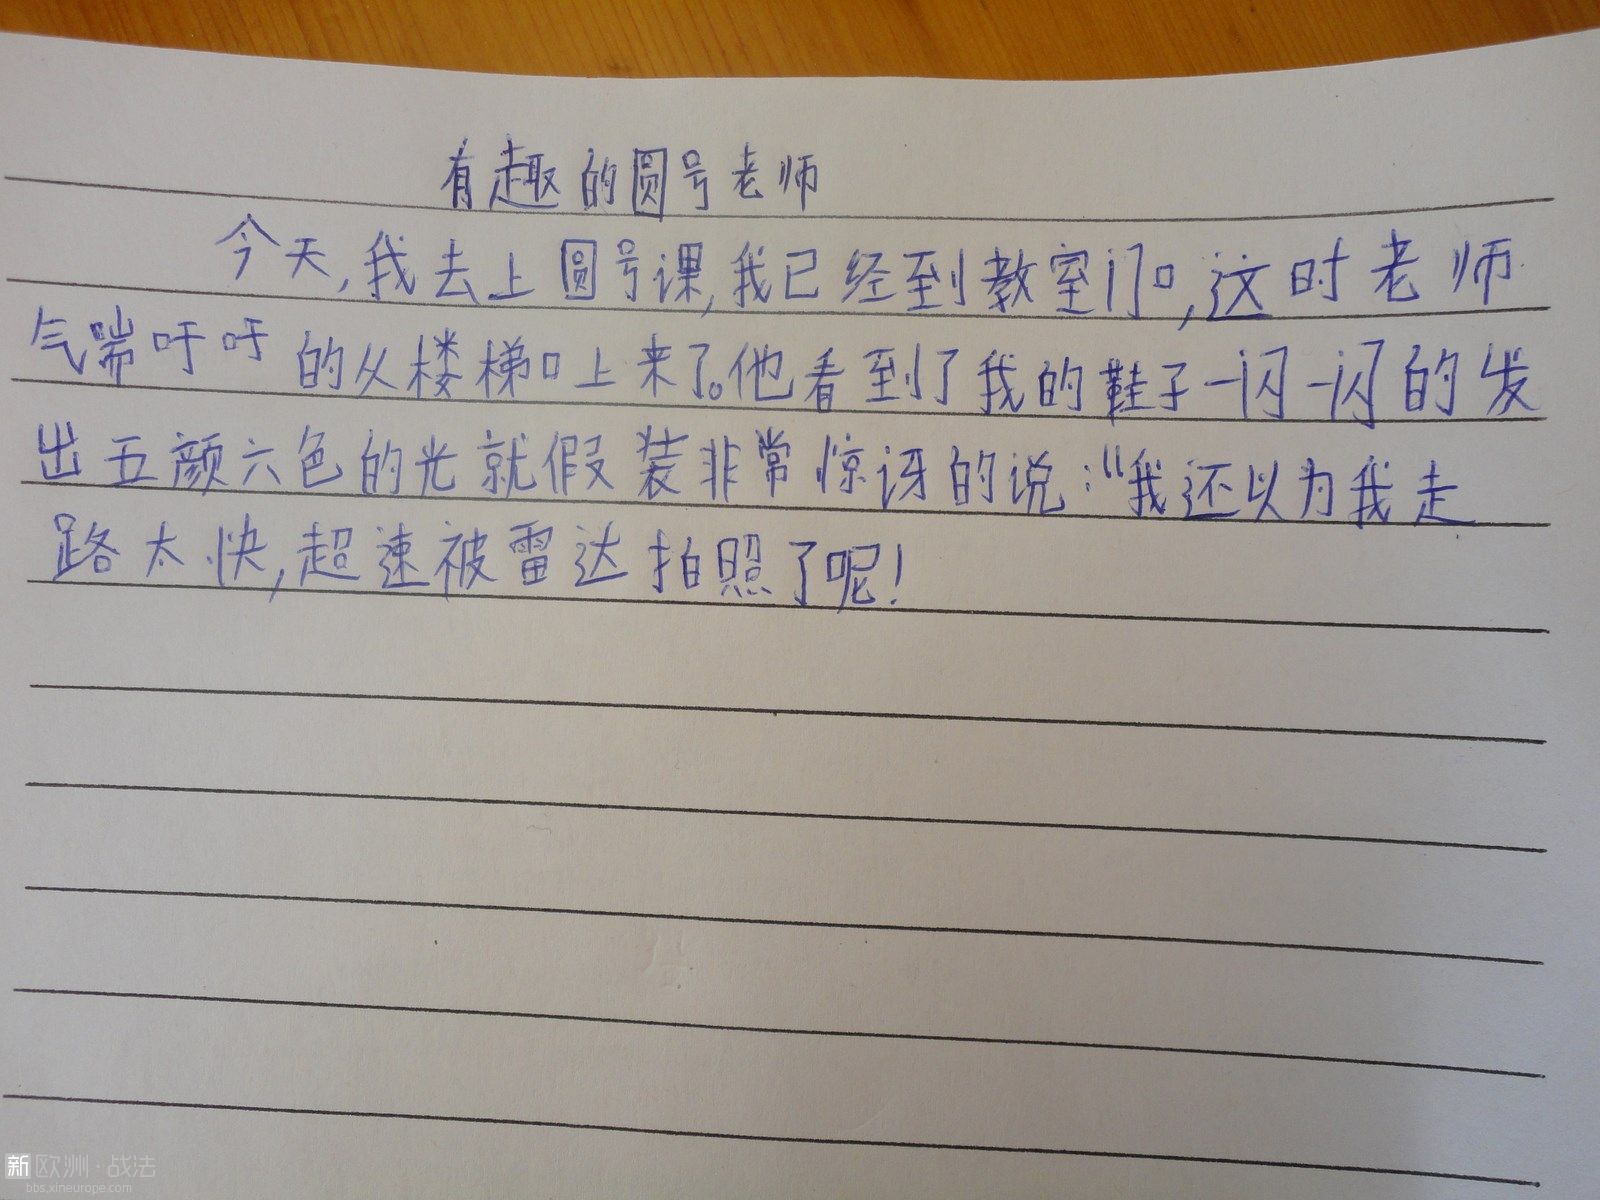 有趣的圆号老师
今天,我去上圆号课,我已经到教室门口,这时老师
气喘吁吁的从楼梯口上来了。他看到了我的鞋子一闪一闪的发
出五颜六色的光就假装非常惊讶的说:“我还以为我走
路太快,超速被雷达拍照了呢!
新欧洲·战法
bbs.xineurope.com